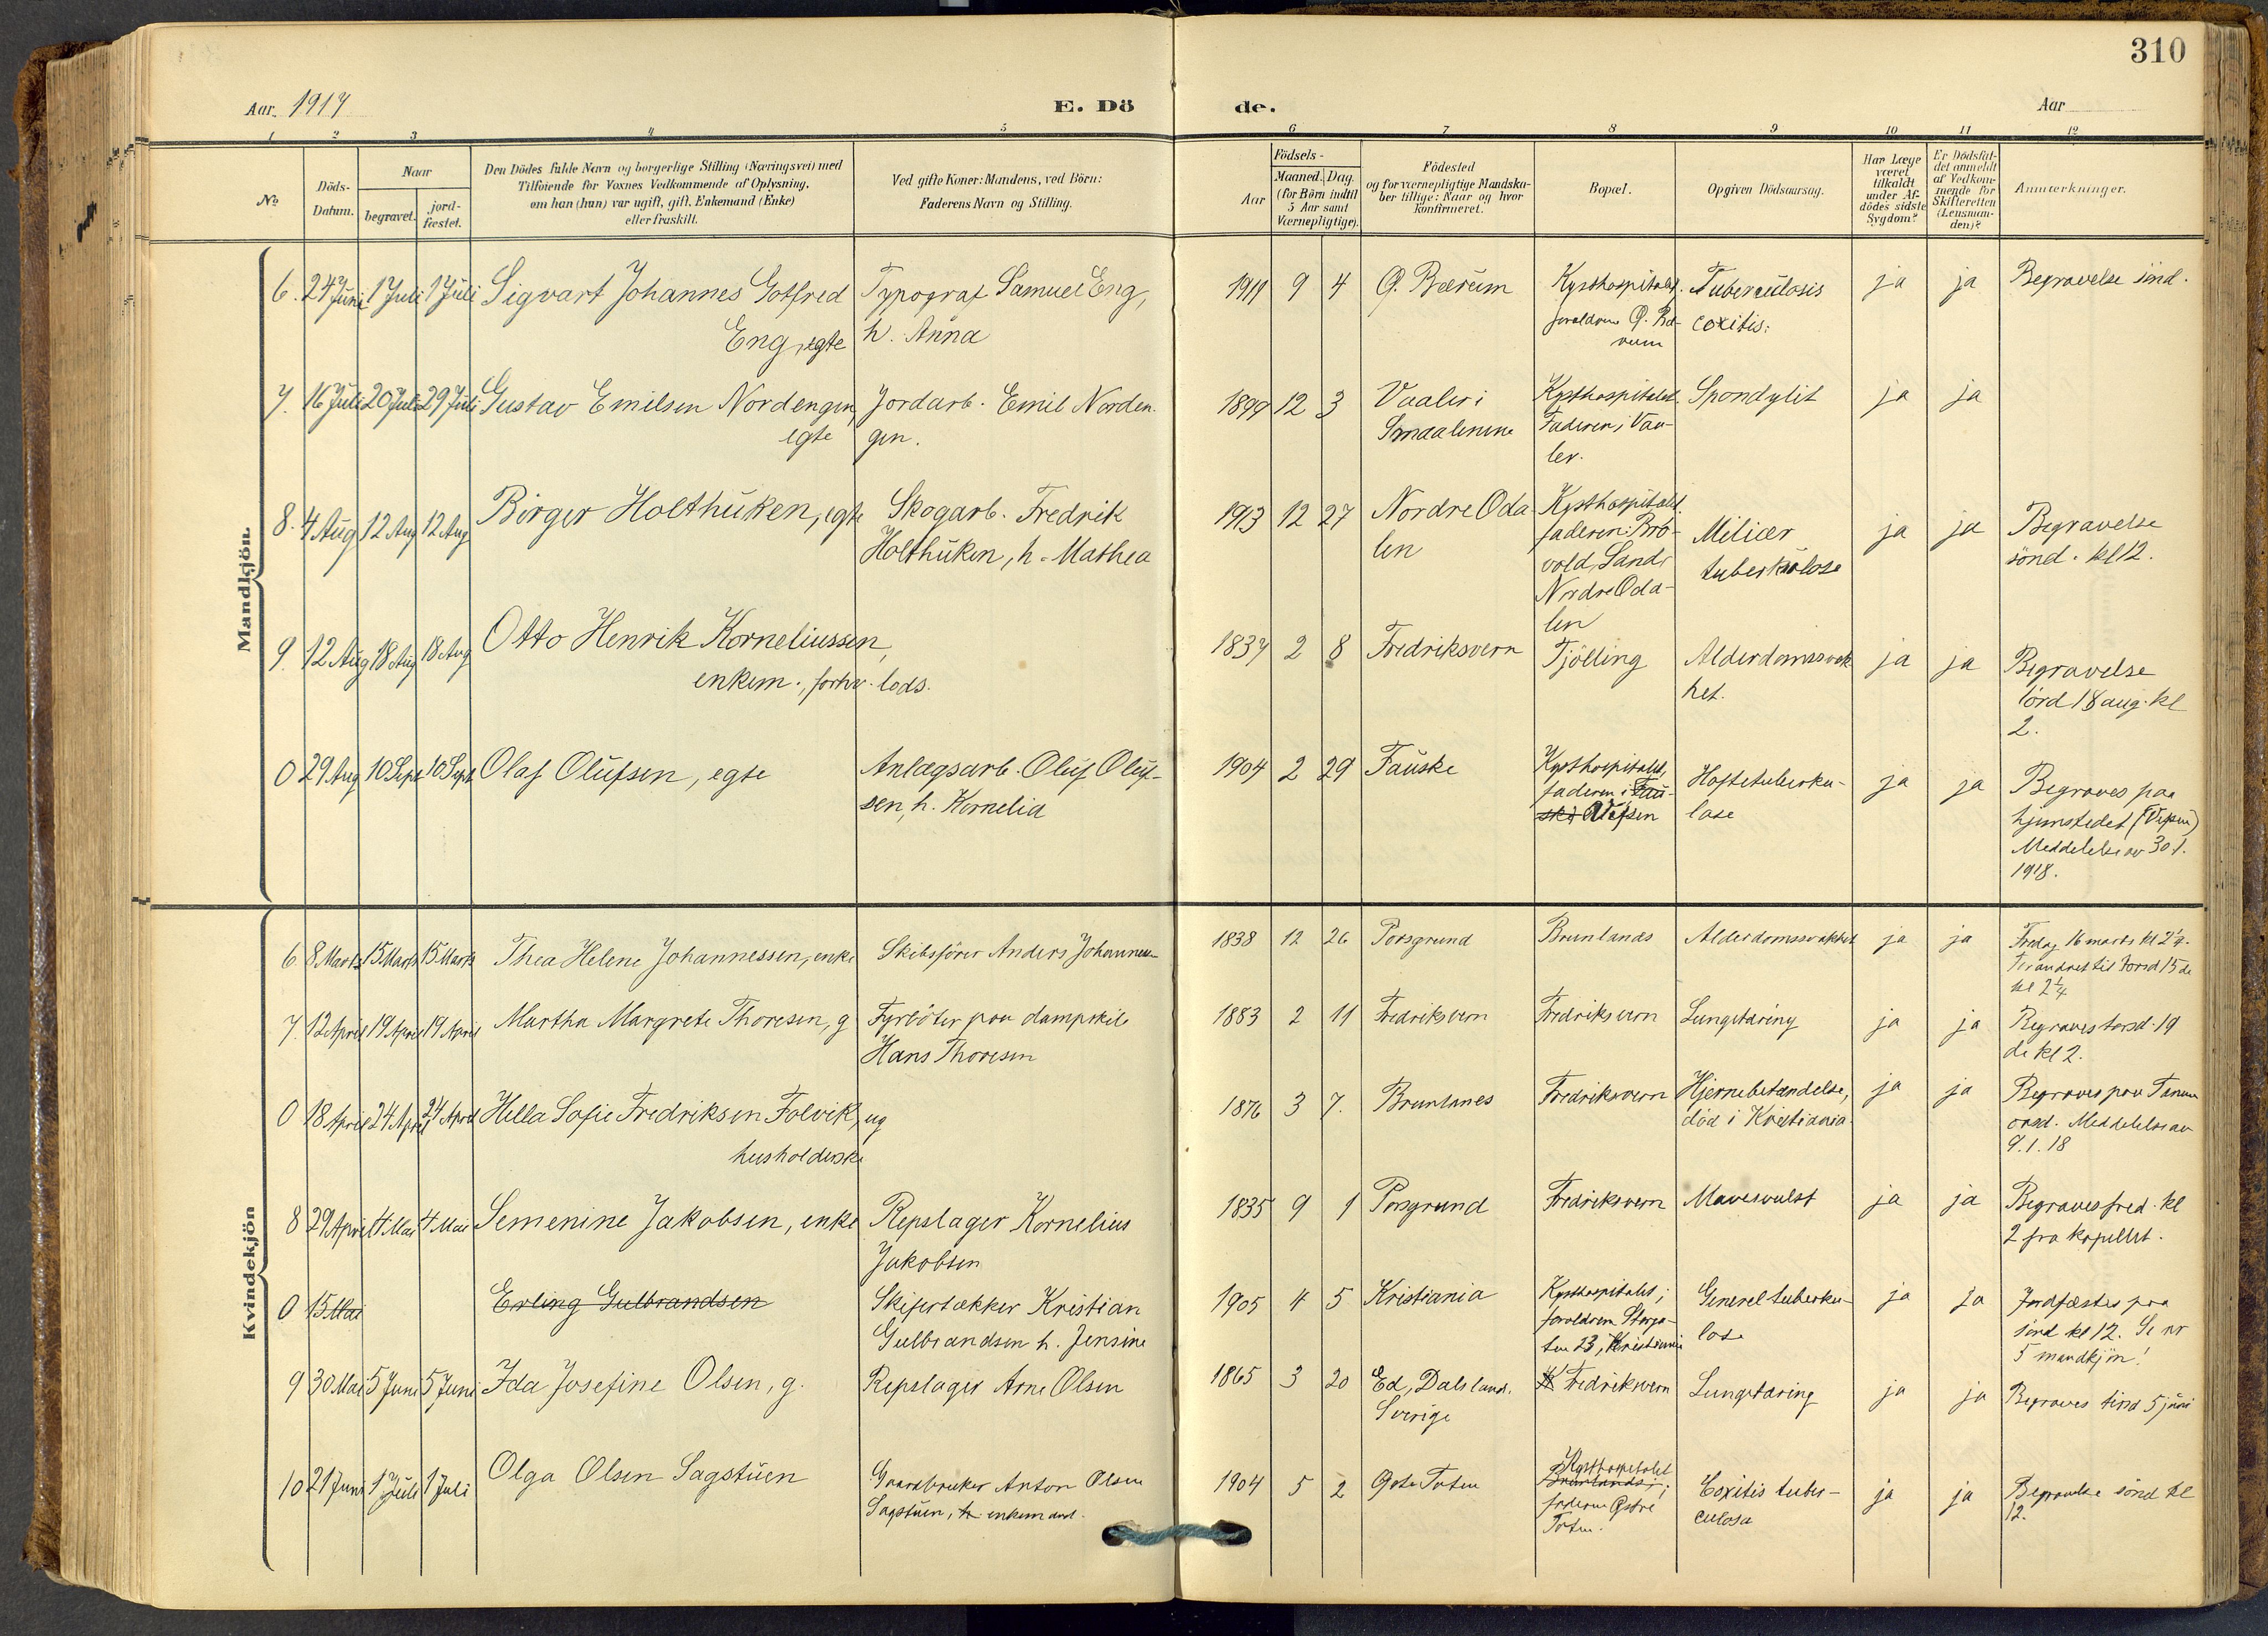 310
Aar 1917 E. Dö de. Aar
1 2 3 4 5 6 7 8 9 10 11 12
No
Döds-Datum.
Naar
begravet. jordfæstet.
Den Dödes fulde Navn og borgerlige Stilling (Næringsvei) med
Tilföiende for Voxnes Vedkommende af Oplysning,
om han (hun) var ugift, gift, Enkemand (Enke)
eller fraskilt.
Ved gifte Koner: Mandens, ved Börn:
Faderens Navn og Stilling.
Födsels-
Aar Maaned. Dag.
(for Börn indtil
5 Aar samt
Værnepligtige).
Födested
og for værnepligtige Mandskaber tillige: Naar og hvor
konfirmeret.
Bopæl.
Opgiven Dödsaarsag.
Har Læge
været
tilkaldt
under Afdödes sidste
Sygdom?
Er Dödsfaldet anmeldt
af Vedkommende for
Skifteretten
(Lensmanden)?
Anmærkninger.
Mandkjön.
6. 24 Juni 1 Juli 1 Juli Sigvart Johannes Gotfred Typograf Samuel Eng, 1911 9 4 Ö. Bærum Kysthospitalet. Tuberculosis ja ja Begravelse sönd.
Eng, egte h. Anna forældrene Ö. Bæ- coxitis.
rum
7. 16 Juli 20 Juli 29 Juli Gustav Emilsen Nordengen, Jordarb. Emil Norden- 1899 12 3 Vaaler i Kysthospitalet Spondylit ja ja
egte gen. Smaalenene Faderen i Vaa-
ler.
8. 4 Aug 12 Aug 12 Aug Birger Holthuken, egte Skogarb. Fredrik 1913 12 27 Nordre Oda Kysthospitalet. Miliær ja ja Begravelse
Holthuken, h. Mathea len faderen: tuberkulose sönd. kl 12.
Sand,
Nordre Oda-
len
9. 12 Aug 18 Aug 18 Aug Otto Henrik Korneliussen, 1837 2 8 Fredriksvern Tjölling Alderdomssvak ja ja Begravelse
enkem., forhv. lods. het. lörd 18 aug. kl
2.
0 29 Aug 10 Sept 10 Sept Olaf Olufsen, egte Anlægsarb. Oluf Oluf- 1904 2 29 Fauske Kysthospitalet, Hoftetuberku- ja ja Begraves paa
sen, h. Kornelia faderen i Fau- lose hjemstedet (Vefsen)
ske Vefsen Meddelelse av 30/1.
1918.
Kvindekjön
6 8 Marts 15 Marts 15 Marts Thea Helene Johannessen, enke Skibsförer Anders Johannes- 1838 12 26 Porsgrund Brunlanes Alderdomssvakhet ja ja Fredag 16 marts kl 2¼.
Forandret til torsd 15 de
kl 2¼
7. 12 April 19 April 19 April Martha Margrete Thoresen, g Fyrböter paa dampskib 1883 2 11 Fredriksvern Fredriksvern Lungetæring ja ja Begraves torsd. 19
Hans Thoresen de kl 2.
0 18 April 24 April 24 April Hella Sofie Fredriksen Folvik, ug 1876 3 7. Brunlanes Fredriksvern Hjernebetændelse, ja ja Begraves paa Tanum
husholderske död i Kristiania. onsd. Meddelelse av
9.1.18
8 29 April 4 Mai 4 Mai Semenine Jakobsen, enke Repslager Kornelius 1835 9 1 Porsgrund Fredriksvern Mavesvulst ja ja Begraves fred. kl
Jakobsen 2 fra kapellet.
0 15 Mai Erling Gulbrandsen Skifertækker Kristian 1905 4 5 Kristiania Kysthospitalet; Generel tuberku- ja ja Jordfæstes paa
Gulbrandsen h. Jensine forældrene Storga- lose sönd kl 12. Se nr
ten 23, Kristiania 5 mandkjön!
9 30 Mai 5 Juni 5 Juni Ida Josefine Olsen, g. Repslager Arne Olsen 1865 3 20 Ed, Dalsland. Fredriksvern Lungetæring ja ja Begraves tirsd 5 juni
Sverige
10 21 Juni 1 Juli 1 Juli Olga Olsen Sagstuen Gaardbruker Anton Olsen 1904 5 2 Östre Toten Kysthospitalet Coxitis tuber- ja ja Begravelse sönd kl
Sagstuen, h. enkemand. Brunlanes; culosa 12.
faderen Östre
Toten.